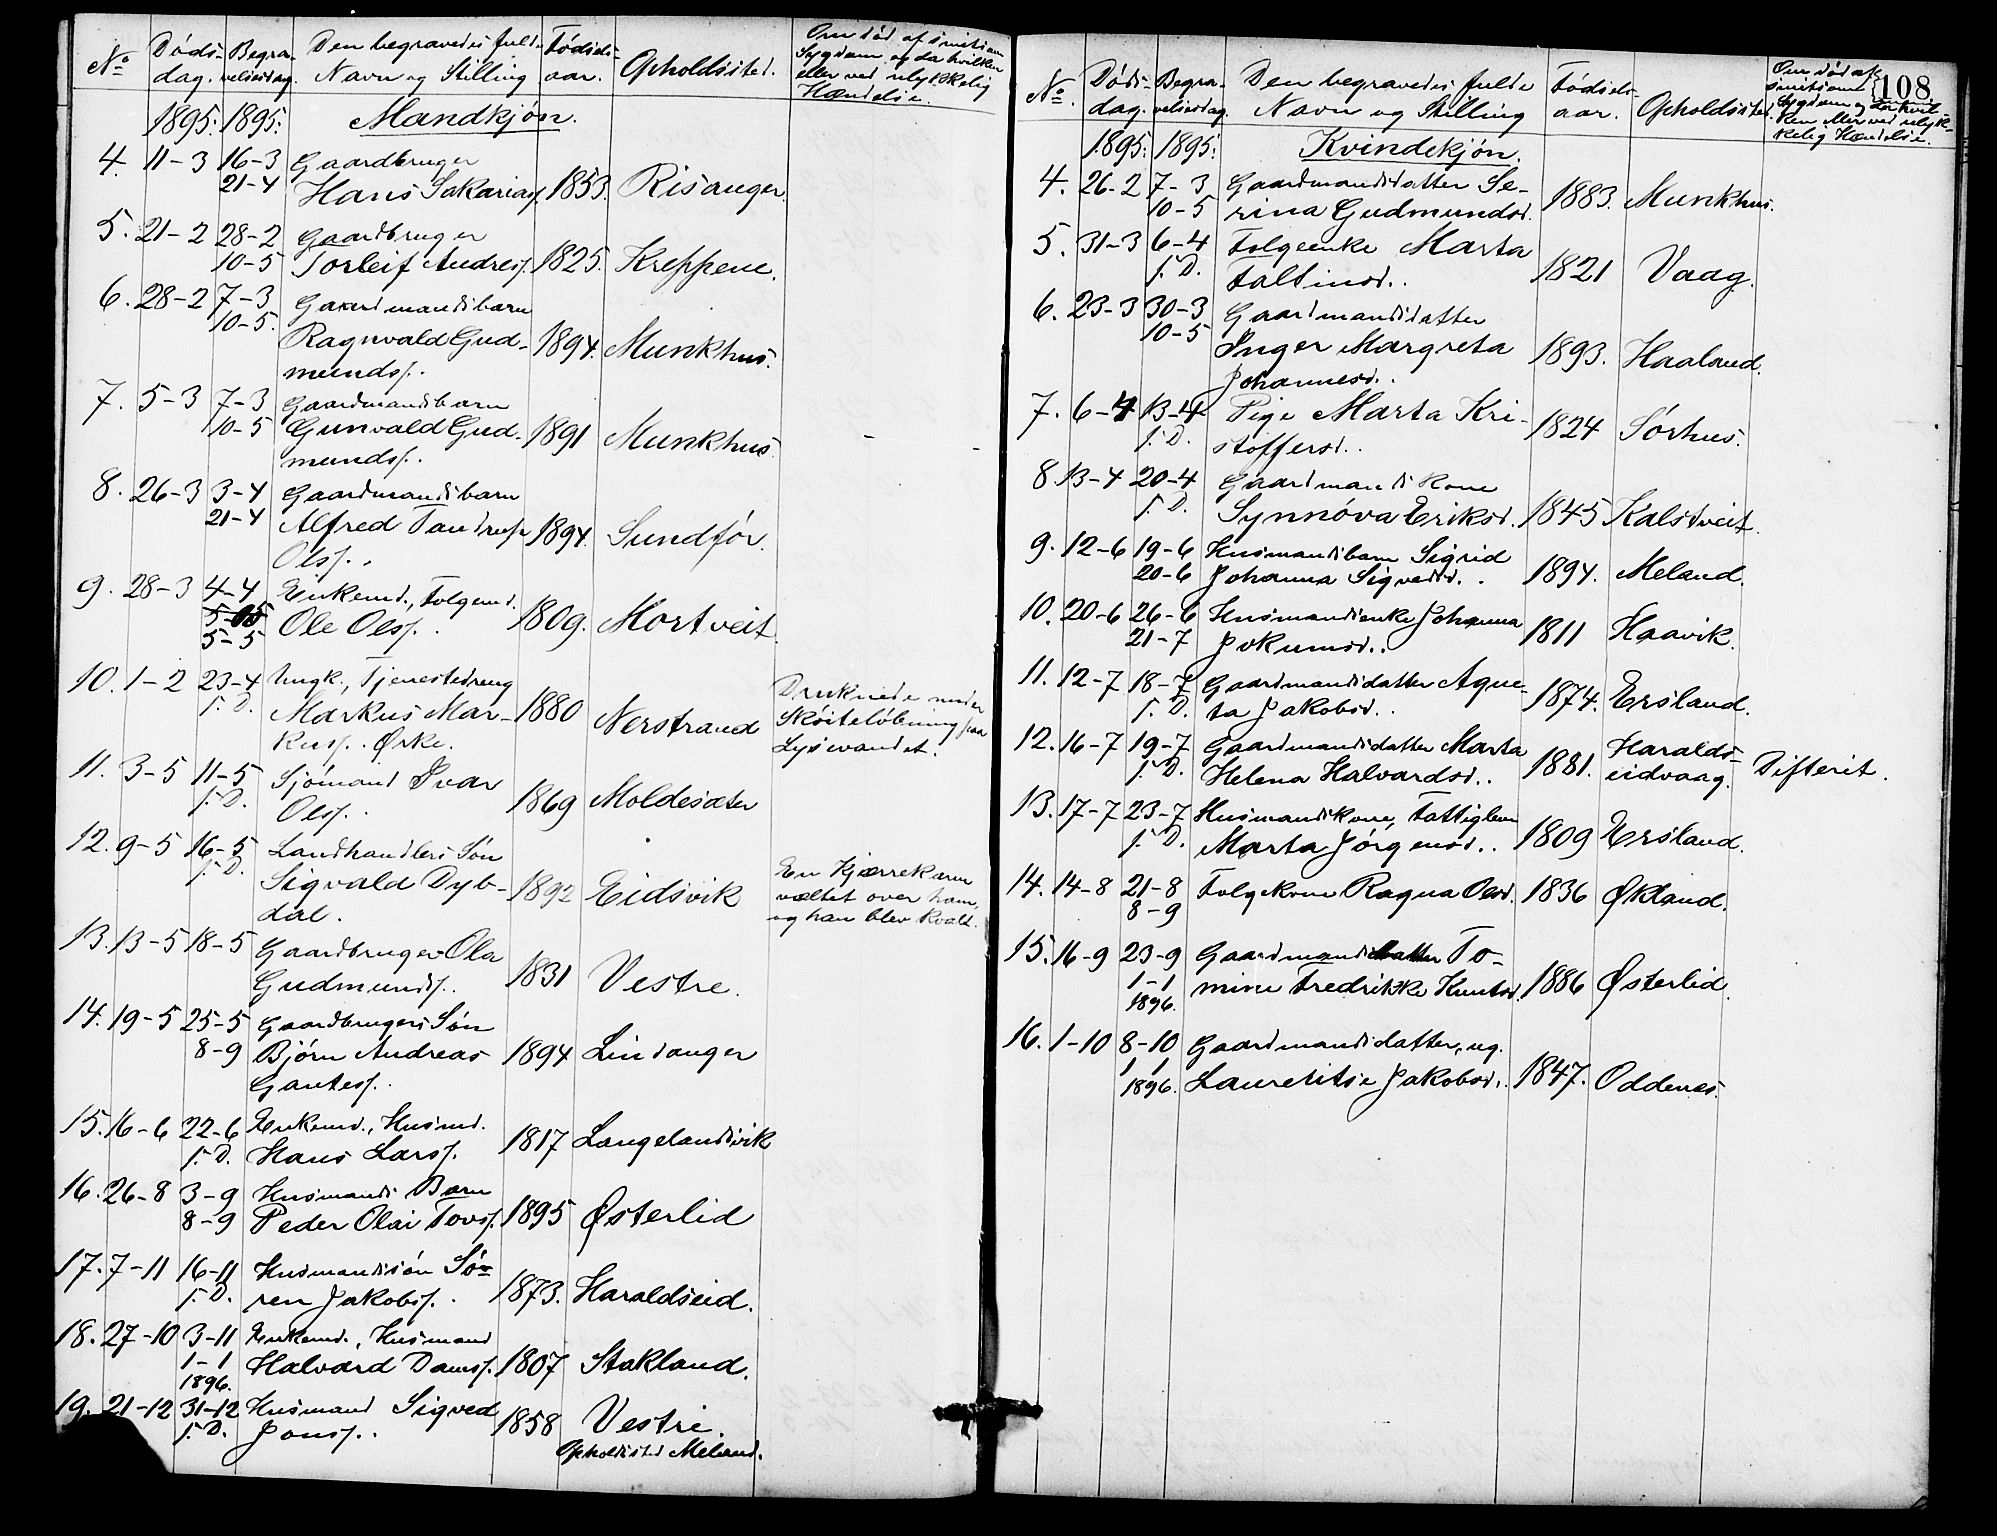 No
Døds-
dag.
Begra-
velsesdag.
Den begravedes fulde
Navn og Stilling
Fødsels-
aar.
Opholdssted.
Om død af smitsom
Sygdom og da hvilken
eller ved ulykkelig
Hændelse.
1895: 1895: Mandkjøn.
4. 11-3 16-3 Gaardbruger
21-4 Hans Sakarias. 1853. Risanger.
5. 21-2 28-2 Gaardbruger
10-5 Torleif Andress. 1825. Kreppene.
6. 28-2 7-3 Gaardmandsbarn
10-5. Ragnvald Gud- 1894. Munkhus.
munds.
7. 5-3 7-3 Gaardmandsbarn
10-5 Gunvald Gud- 1891 Munkhus.
munds.
8. 26-3 3-4 Gaardmandsbarn
21-4 Alfred Tandrup 1894. Sundfør.
Ols.
9. 28-3 4-4 Enkemd., Folgemd.
5-5 Ole Ols. 1809. Mortveit.
10. 1-2 23-4 Ungk., Tjenestedreng
s. D. Markus Mar- 1880 Nerstrand
kuss. Ørke.
Druknede under
Skøiteløbning paa
Lysevandet.
11. 3-5 11-5 Sjømand Ivar
s. D. Ols. 1869 Moldesæter
12. 9-5 16-5 Landhandlers Søn
s. D. Sigvald Dyb- 1892 Eidsvik
dal.
En Kjærrekarm
væltet over ham,
og han blev kvalt.
13. 13-5 18-5 Gaardbruger Ola
Gudmunds. 1831 Vestre.
14. 19-5 25-5 Gaardbrugers Søn
8-9 Bjørn Andreas 1894 Lindanger
Gautes.
15. 16-6 22-6 Enkemd., Husmd.
s. D. Hans Lars. 1817 Langelandsvik
16. 26-8 3-9 Husmands Barn
8-9 Peder Olai Tovs. 1895 Østerlid
17. 7-11 16-11 Husmandssøn Sø-
s. D. ren Jakobs. 1873. Haraldseid.
18. 27-10 3-11 Enkemd., Husmand
1-1 Halvard Dams. 1807 Stakland.
1896.
19. 21-12 31-12 Husmand Sigved
s. D. Jons. 1858 Vestre.
Opholdssted Meland.
108
No.
Døds-
dag.
Begra-
velsesdag.
Den begravedes fulde
Navn og Stilling
Fødsels-
aar.
Opholdssted.
Om død af
smitsom
Sygdom og da hvil-
ken eller ved ulyk-
kelig Hændelse.
1895: 1895: Kvindekjøn.
4. 26-2 7-3 Gaardmandsdatter Se-
10-5 rina Gudmundsd. 1883. Munkhus.
5. 31-3 6-4 Folgeenke Marta
s. D. Faltinsd. 1821 Vaag.
6. 23-3 30-3 Gaardmandsdatter
10-5 Inger Margreta 1893. Haaland.
Johannesd.
7. 6-4 13-4 Pige Marta Kri-
s. D. stoffersd. 1824 Sørhus.
8. 13-4 20-4 Gaardmandskone
s. D. Synnøva Eriksd. 1845 Kalstveit.
9. 12-6 19-6 Husmandsbarn Sigrid
20-6 Johanna Sigvedsd. 1894. Meland.
10. 20-6 26-6 Husmandsenke Johanna
21-7 Jokumsd. 1811 Haavik.
11. 12-7 18-7 Gaardmandsdatter Agne-
s. D. ta Jakobsd. 1874. Ersland.
12. 16-7 19-7 Gaardmandsdatter Marta
s. D. Helena Halvardsd. 1881. Haralds-
eidvaag. Difterit.
13. 17-7 23-7 Husmandskone, Fattiglem
s. D. Marta Jørgensd. 1809 Ersland.
14. 14-8 21-8 Folgekone Ragna Olsd. 1836 Økland.
8-9
15. 16-9 23-9 Gaardmandsdatter To-
1-1 mine Fredrikke Knutsd. 1886 Østerlid.
1896.
16. 1-10 8-10 Gaardmandsdatter, ug.
1 1 Lauretitse Jakobsd. 1847. Oddenes.
1896.